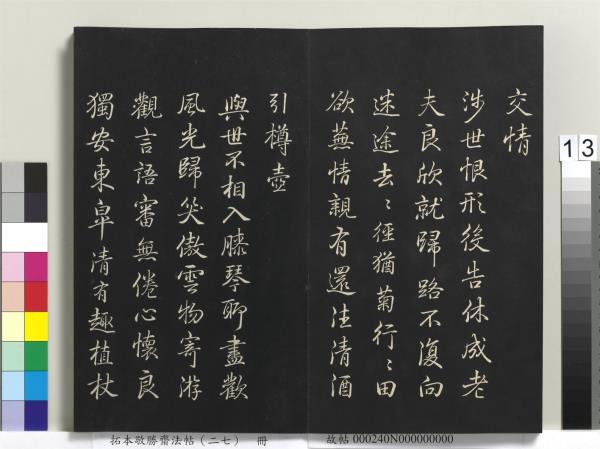 交情
涉世恨形役告休成老
夫良欣就歸路不復向
迷途去々徑猶菊行々田
欲蕪情親有還往清酒
引樽壺
與世不相入膝琴聊盡歡
風光歸笑傲雲物寄游
觀言語審無倦心懷良
獨安東皐清有趣植杖
13
拓本敬勝齋法帖（二七） 冊
故帖 000240N000000000